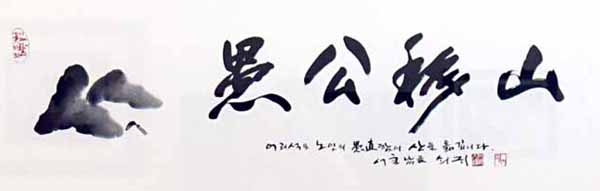 愚公移山
어리석은 노인의 愚直함이 산을 옮깁니다.